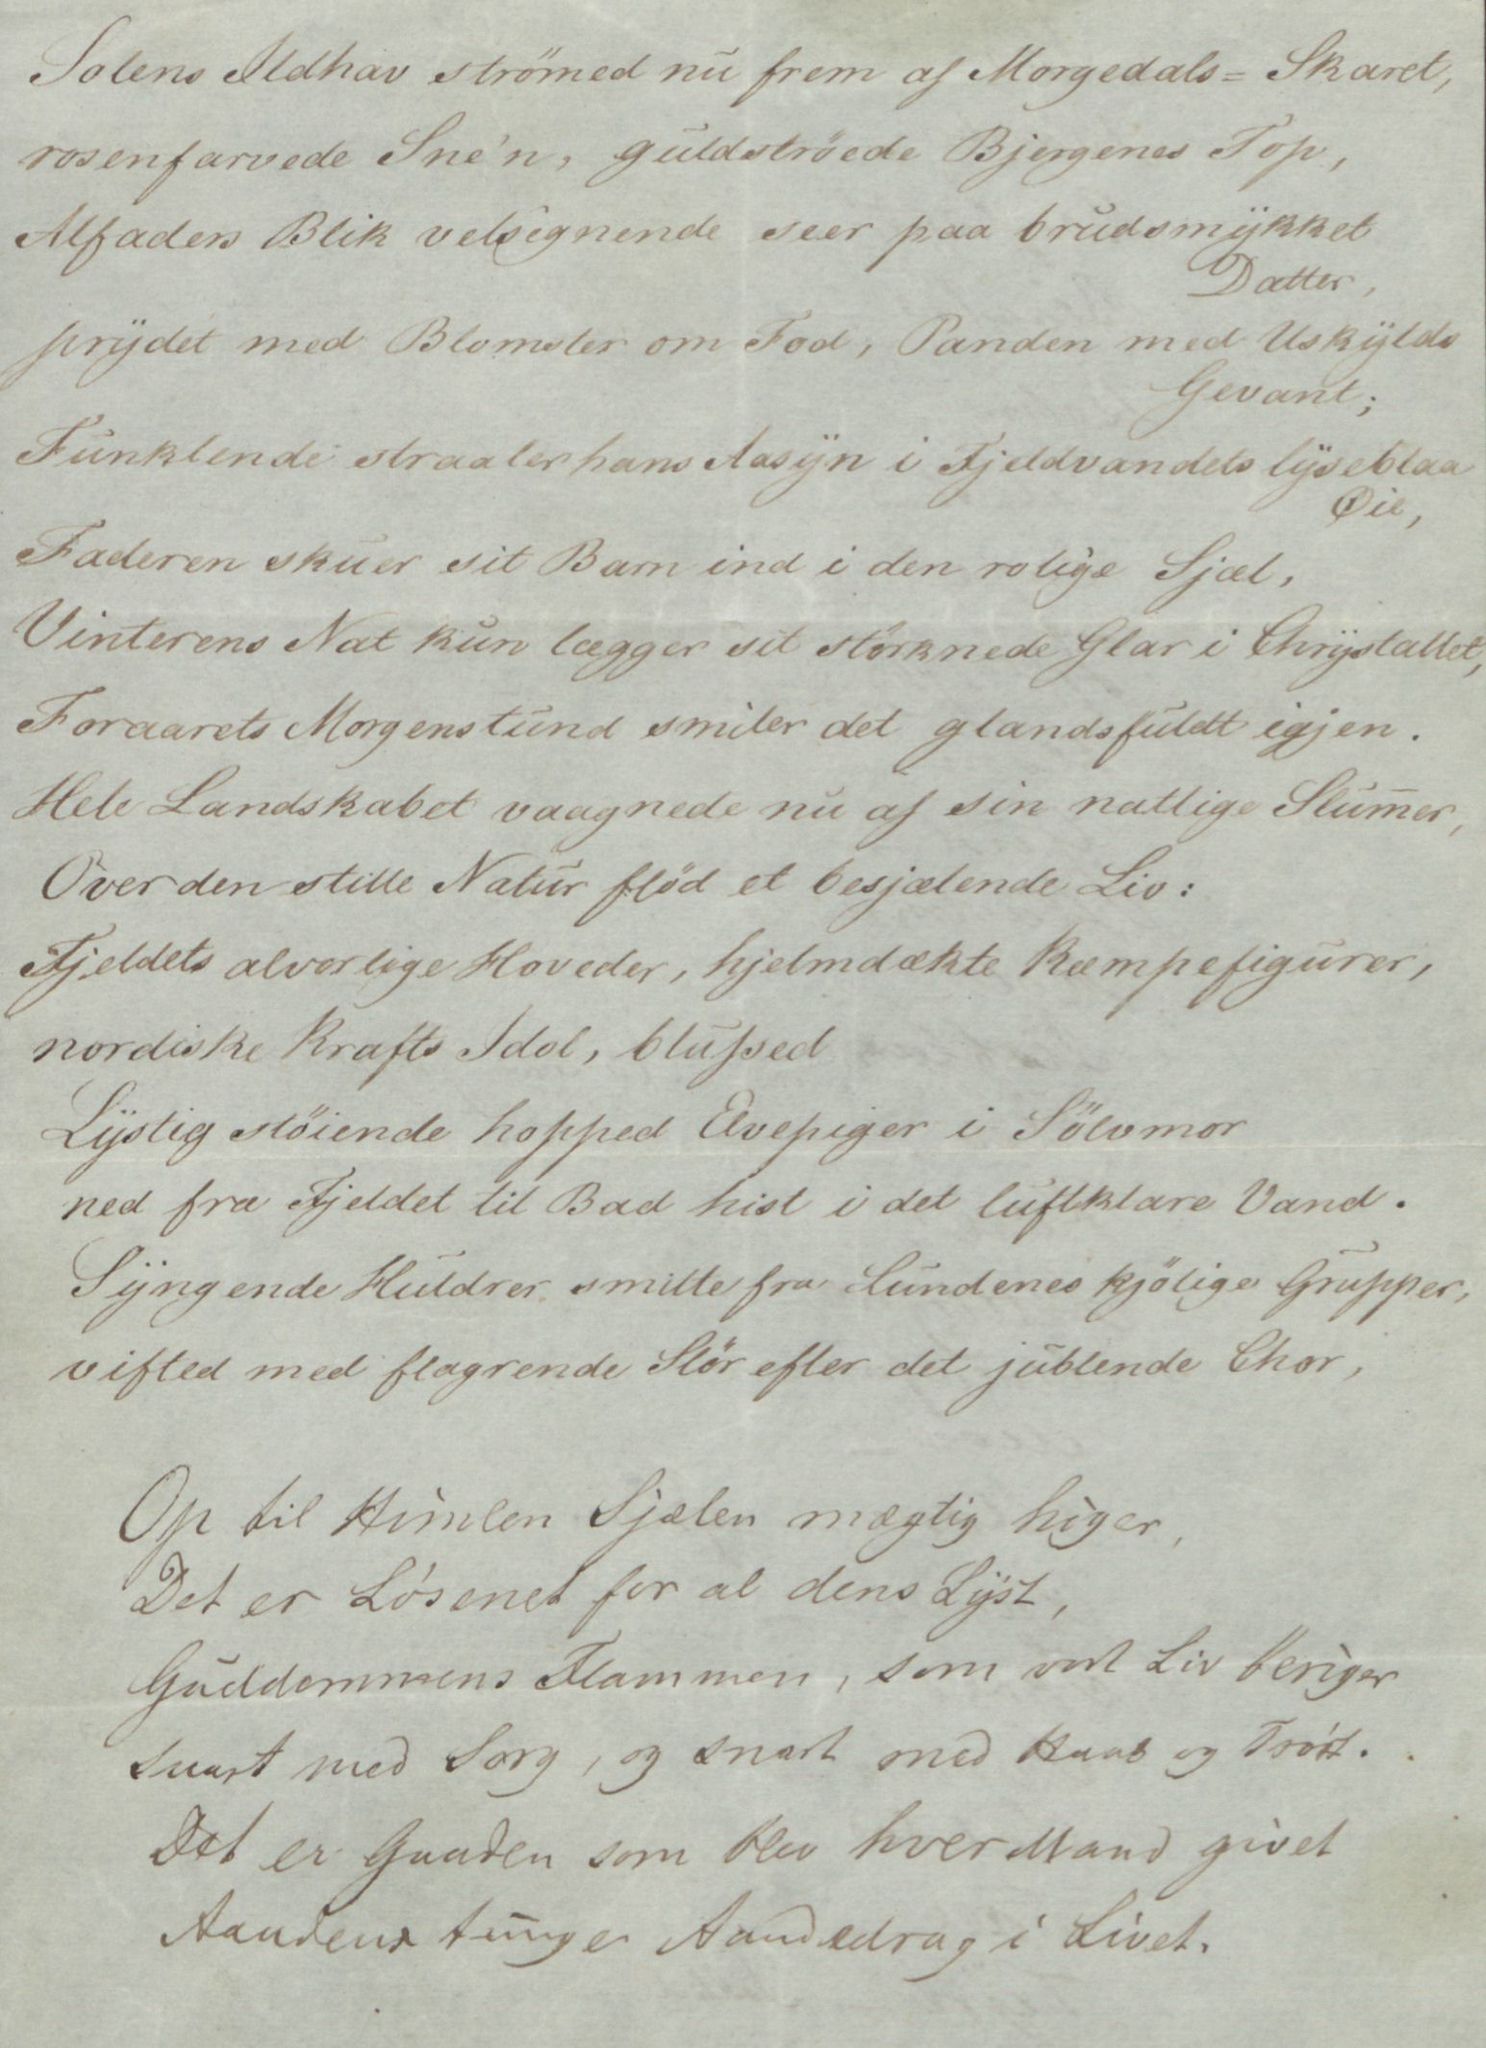 Solens Ildhav strömed nu frem af Morgedals=Skaret,
rosenfarvede Sne'n, guldströede Bjergenes Top,
Alfaders Blik velsignende seer paa brudsmykket
Datter,
prydet med Blomster om Fod, Panden med Uskylds
Gevant;
Funklende straaler hans Aasyn i Fjeldvandets lyseblaa
Øie,
Faderen skuer sit Barn ind i den rolige Sjæl,
Vinterens Nat kun lægger sit störknede Glar i Chrystallet,
Foraarets Morgenstund smiler det glandsfuldt igjen.
Hele Landskabet vaagnede nu af sin natlige Slum̄er,
Over den stille Natur flöd et besjælende Liv:
Fjeldets alvorlige Hoveder, hjelmdækte Kæmpefigurer,
nordiske Krafts Idol, blussed
Lystig stöiende hopped Elvepiger i Sölvmor
ned fra Fjeldet til Bad hist i det luftklare Vand.
Syngende Huldrer smilte fra Lundenes kjölige Grupper,
vifted med flagrende Slör efter det jublende Chor,
Op til Himlen Sjælen mægtig higer,
Det er Lösenet for al dens Lyst,
Guddommens Flammen, som vort Liv beriger
snart med Sorg, og snart med Haab og Tröst.
Det er Gaaden som blev hver Mand givet
Aandens tunge Aandedrag i Livet.